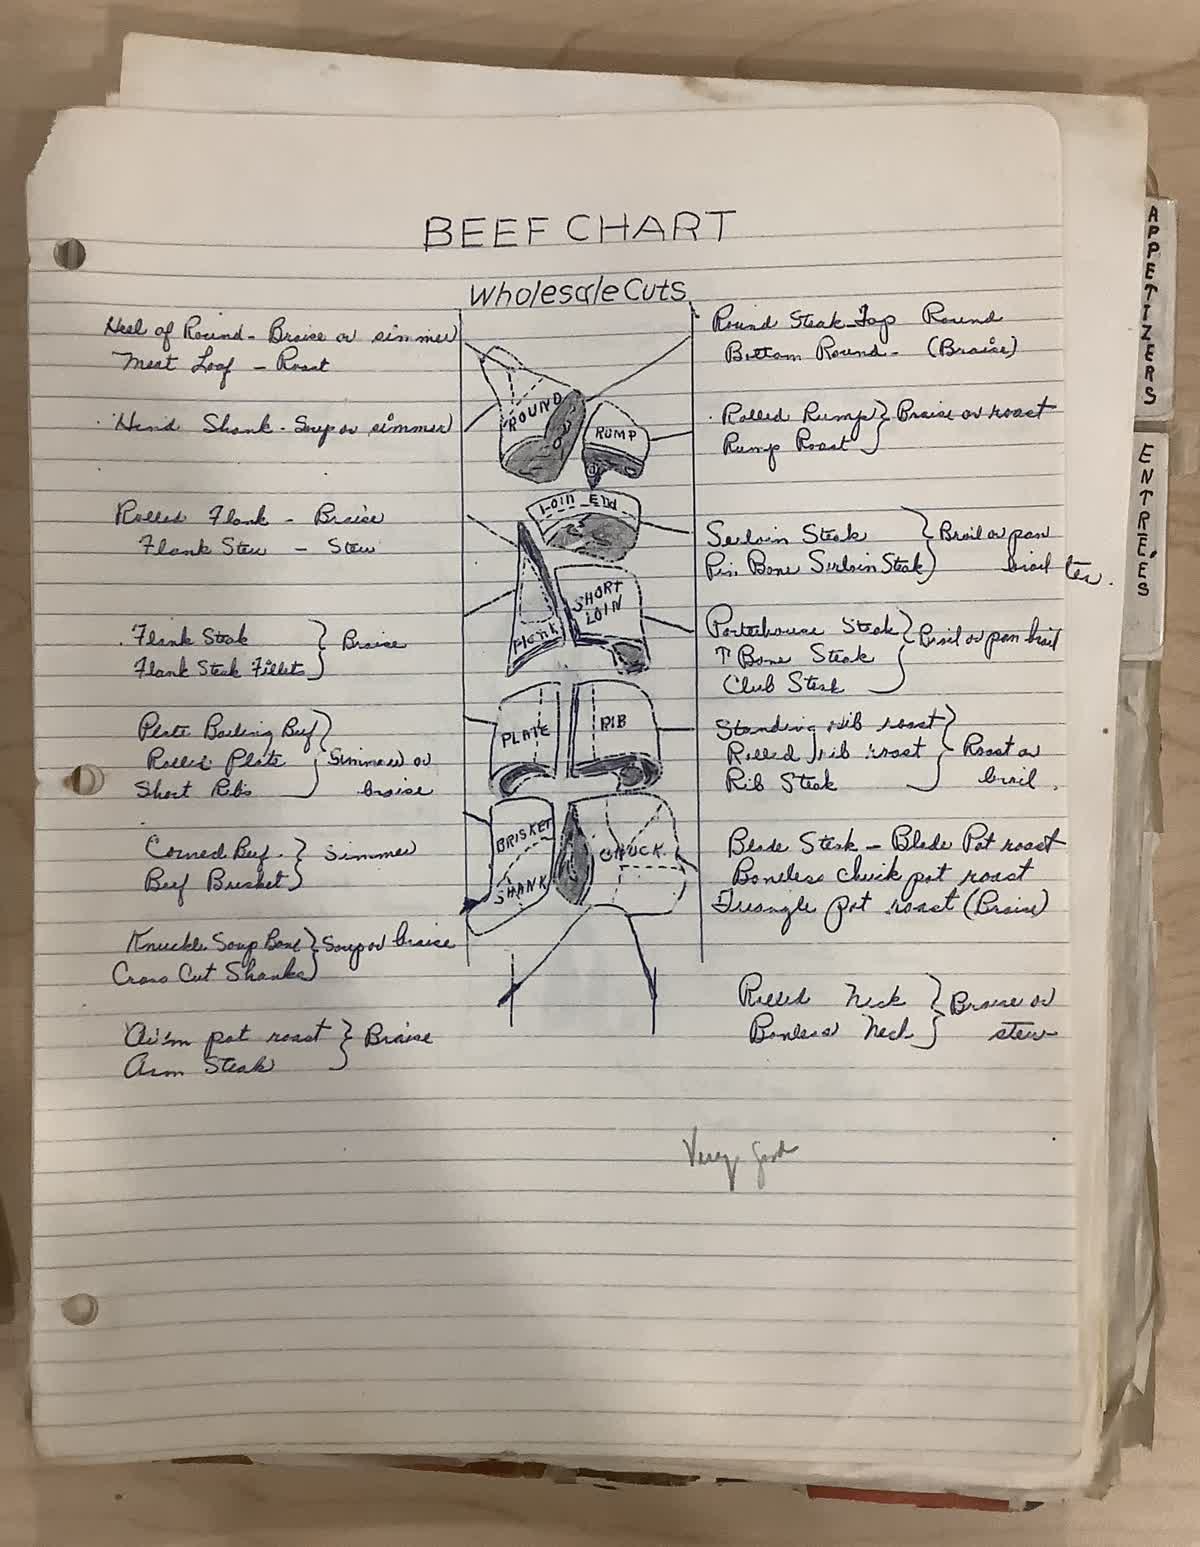 BEEF CHART
Wholesale Cuts
Heel of Round - Braise or simmer
Meat Loaf - Roast
Hind Shank - Soup or simmer
Rolled Flank - Braise
Flank Stew - Stew
Flank Steak
Flank Steak Fillets } Braise
Plate Boiling Beef
Rolled Plate } Simmer or
Short Ribs braise
Corned Beef } Simmer
Beef Brisket
Knuckle Soup Bone } Soup or braise
Cross Cut Shanks
Arm pot roast } Braise
Arm Steak
ROUND
RUMP
Loin End
Flank
SHORT
LOIN
PLATE
RIB
BRISKET
SHANK
CHUCK
Round Steak - Top Round
Bottom Round - (Braise)
Rolled Rump } Braise or roast
Rump Roast
Serloin Steak } Broil or pan
Pin Bone Sirloin Steak broil
Porterhouse Steak } Broil or pan broil
T Bone Steak
Club Steak
Standing rib roast
Rolled rib roast } Roast or
Rib Steak broil
Blade Steak - Blade Pot roast
Boneless Chuck pot roast
Triangle pot roast (Braise)
Rolled Neck } Braise or
Bonless Neck stew
Very good
APPETIZERS
ENTRÉES